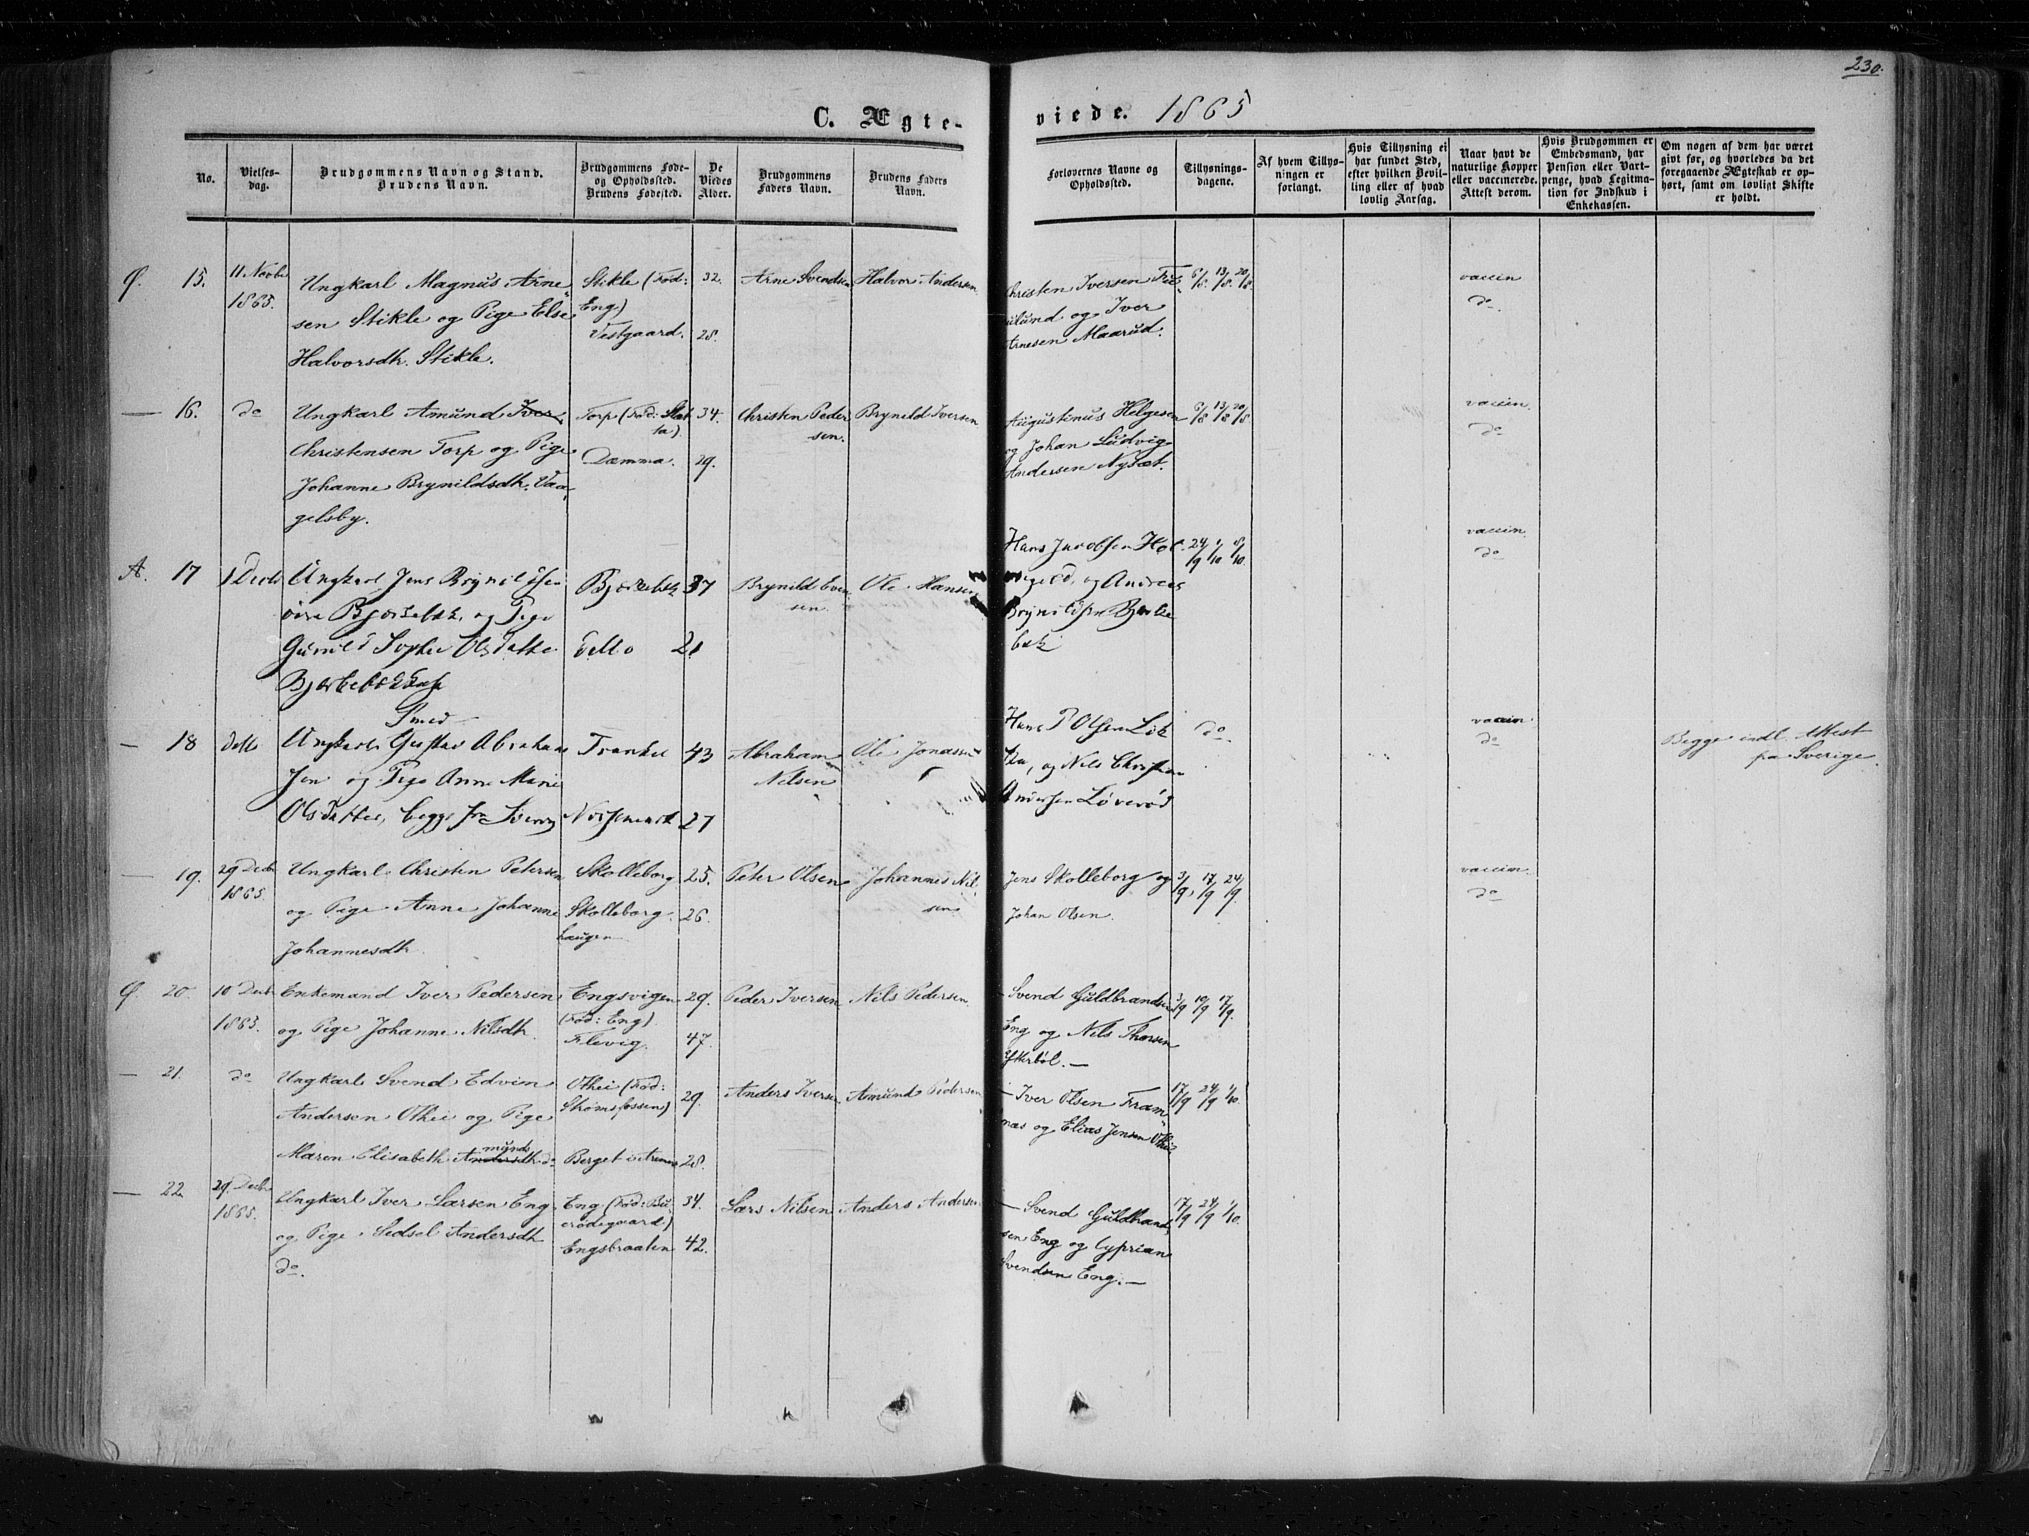 230.
C. Ægte-
viede. 1865
No.
Vielses-
dag.
Brudgommens Navn og Stand.
Brudens Navn.
Brudgommens Føde-
og Opholdssted.
Brudens Fødested.
De
Viedes
Alder.
Brudgommens
Faders Navn.
Brudens Faders
Navn.
Forlovernes Navne og
Opholdssted.
Tillysnings-
dagene.
Af hvem Tillys-
ningen er
forlangt.
Hvis Tillysning ei
har fundet Sted,
efter hvilken Bevil-
ling eller af hvad
lovlig Aarsag.
Naar havt de
naturlige Kopper
eller vaccinerede.
Attest derom.
Hvis Brudgommen er
Embedsmand, har
Pension eller Vart-
penge, hvad Legitima-
tion for Indskud i
Enkekassen.
Om nogen af dem har været
givt før, og hvorledes da det
foregaaende Ægteskab er op-
hørt, samt om lovligt Skifte
er holdt.
Ø. 15. 11 Novbr
1865.
Ungkarl Magnus Arne-
sen Stikle og Pige Else
Halvorsdtr. Stikle.
Stikle (Fød:
Eng)
Vestgaard.
32.
28.
Arne Svendsen
Halvor Andersen
Christen Iversen
lund og Iver
Arnesen Maarud.
6/8 13/8 20/8
vaccin
do
— 16. do
Ungkarl Amund Iver
Christensen Torp og Pige
Johanne Brynildsdtr. Vaa-
gelsby.
Torp (Fød: Slet-
ta)
Damma.
34.
29.
Christen Peder-
sen.
Brynild Iversen
Augustinus Helgesen
og Johan Ludvig
Andersen Nysæt.
6/8 13/8 20/8
vaccin.
do
A. 17 1 Decbr
Ungkarl Jens Brynildsen
Bjørkebek, og Pige
Gunild Sophie Olsdatter
Bjørkebek
Bjørkebek
ditto
37
21
Brynild Even-
sen.
Ole Hansen
Hans Jacobsen Hol-
og Andreas
Brynildsen Bjørke
bek
24/9 1/10 8/10
vaccin.
do
— 18 ditto
Smed
Ungkarl Gustav Abraham
sen og Pige Anne Marie
Olsdatter, begge fra
43
27
Abraham
Nilsen
Ole Jonassen
Hans P Olsen
og Nils Christian
Andersen Løverød
do
vaccin.
do
Begge indl. Attest
fra Sverige.
— 19. 29 Decbr
1865.
Ungkarl Christen Petersen
og Pige Anne Johanne
Johannesdtr.
Skolleborg
Skolleborg-
haugen
25.
26.
Peter Olsen
Johannes Nil-
sen
Jens Skolleborg og
Johan Olsen.
3/9 17/9 24/9
vaccin.
do
Ø. 20 10 Decbr
1865.
Enkemand Iver Pedersen
og Pige Johanne Nilsdtr.
Engsvigen
(Fød: Eng)
Flevig.
29.
47.
Peder Iversen
Nils Pedersen
— Svend Guldbrandsen
Eng og Nils Thorsen
3/9 10/9 17/9.
— 21. do
Ungkarl Svend Edvin
Andersen Othei og Pige
Maren Elisabeth Andersdtr munds do
Othei (Fød:
Strømsfossen)
Berget i
29.
28.
Anders Iversen
Amund Pedersen
— Iver Olsen Fram-
næs og Elias Jensen Othei
17/9 24/9 1/10.
— 22 29 Decbr
1865.
Ungkarl Iver Larsen Eng
og Pige Sidsel Andersdtr
do.
Eng (Fød: Bu-
erødegaard)
Engsbraaten
34.
42.
Lars Nilsen
Anders Andersen
— Svend Guldbrand-
sen Eng og Cyprian
Svendsen Eng. —
17/9 24/9 1/10.